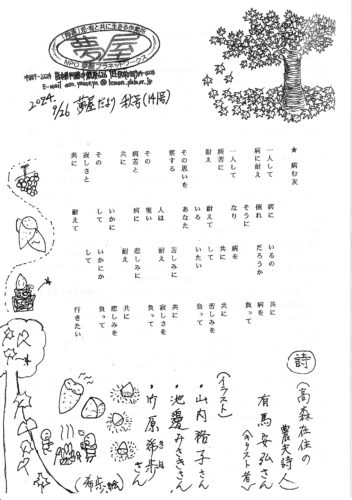 「障害」児・者と共に生きる作業所
夢屋
NPO 夢屋プラネットワークス
2024.
9/26 夢屋だより 秋号
★ 病む友
一人して
病に耐え
一人して
病苦に
耐え
その思いを
察する
その
病苦と
共に
その
寂しさと
共に
病に
倒れ
そうに
なり
耐えて
いる
あなた
人は
重い
病に
いかに
して
耐えて
いるの
だろうか
病を
共に
して
いたい
苦しみに
耐え
悲しみに
耐え
いかにか
して
共に
病を
負って
共に
苦しみを
負って
共に
寂しさを
負って
共に
悲しみを
負って
行きたい
詩
(高森在住の
農夫詩人
有馬安弘さん
(キリスト者)
(イラスト)
・山内裕子さん
・池邊みさきさん
・竹原希歩さん
(希歩、絵)